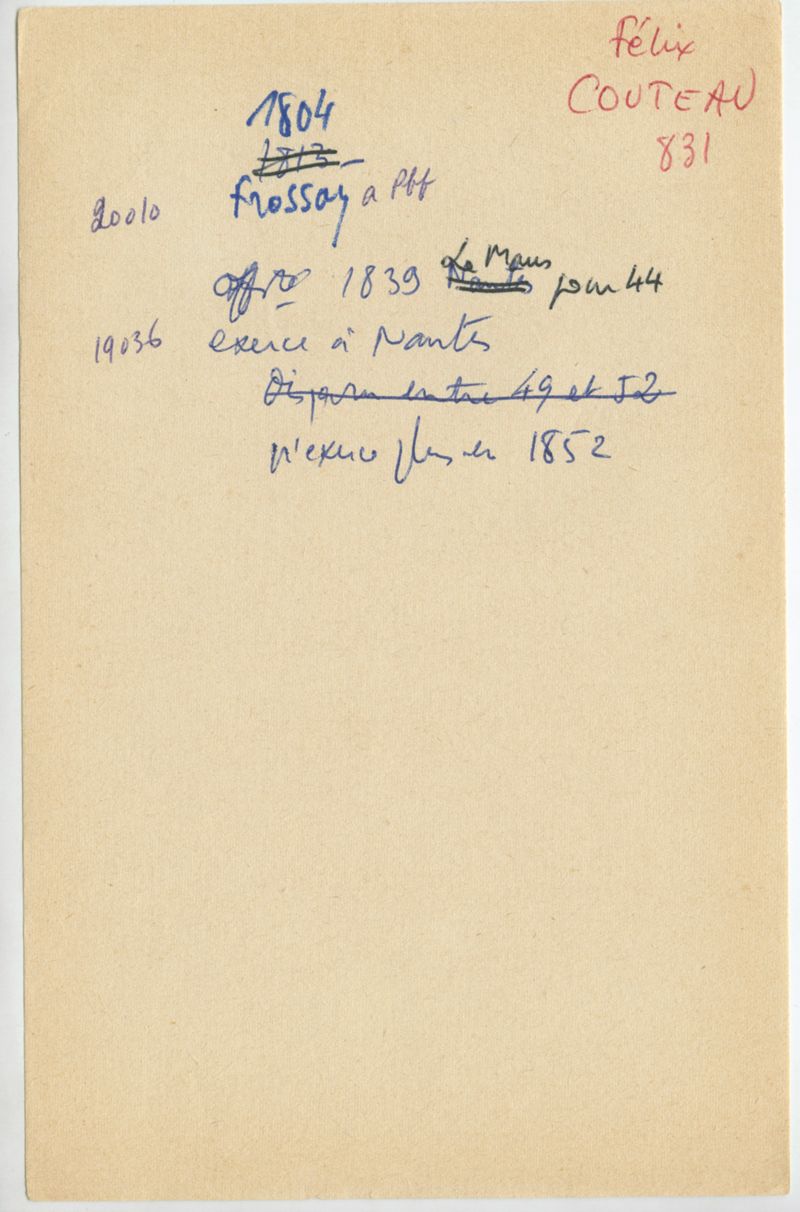 Félix
COUTEAU
831
1804
1813 –
20010 Frossay a Pbf
1839 Nantes Le Mans pour 44
19036 exerce à Nantes
Disparu entre 49 et 52
n'exerce plus en 1852